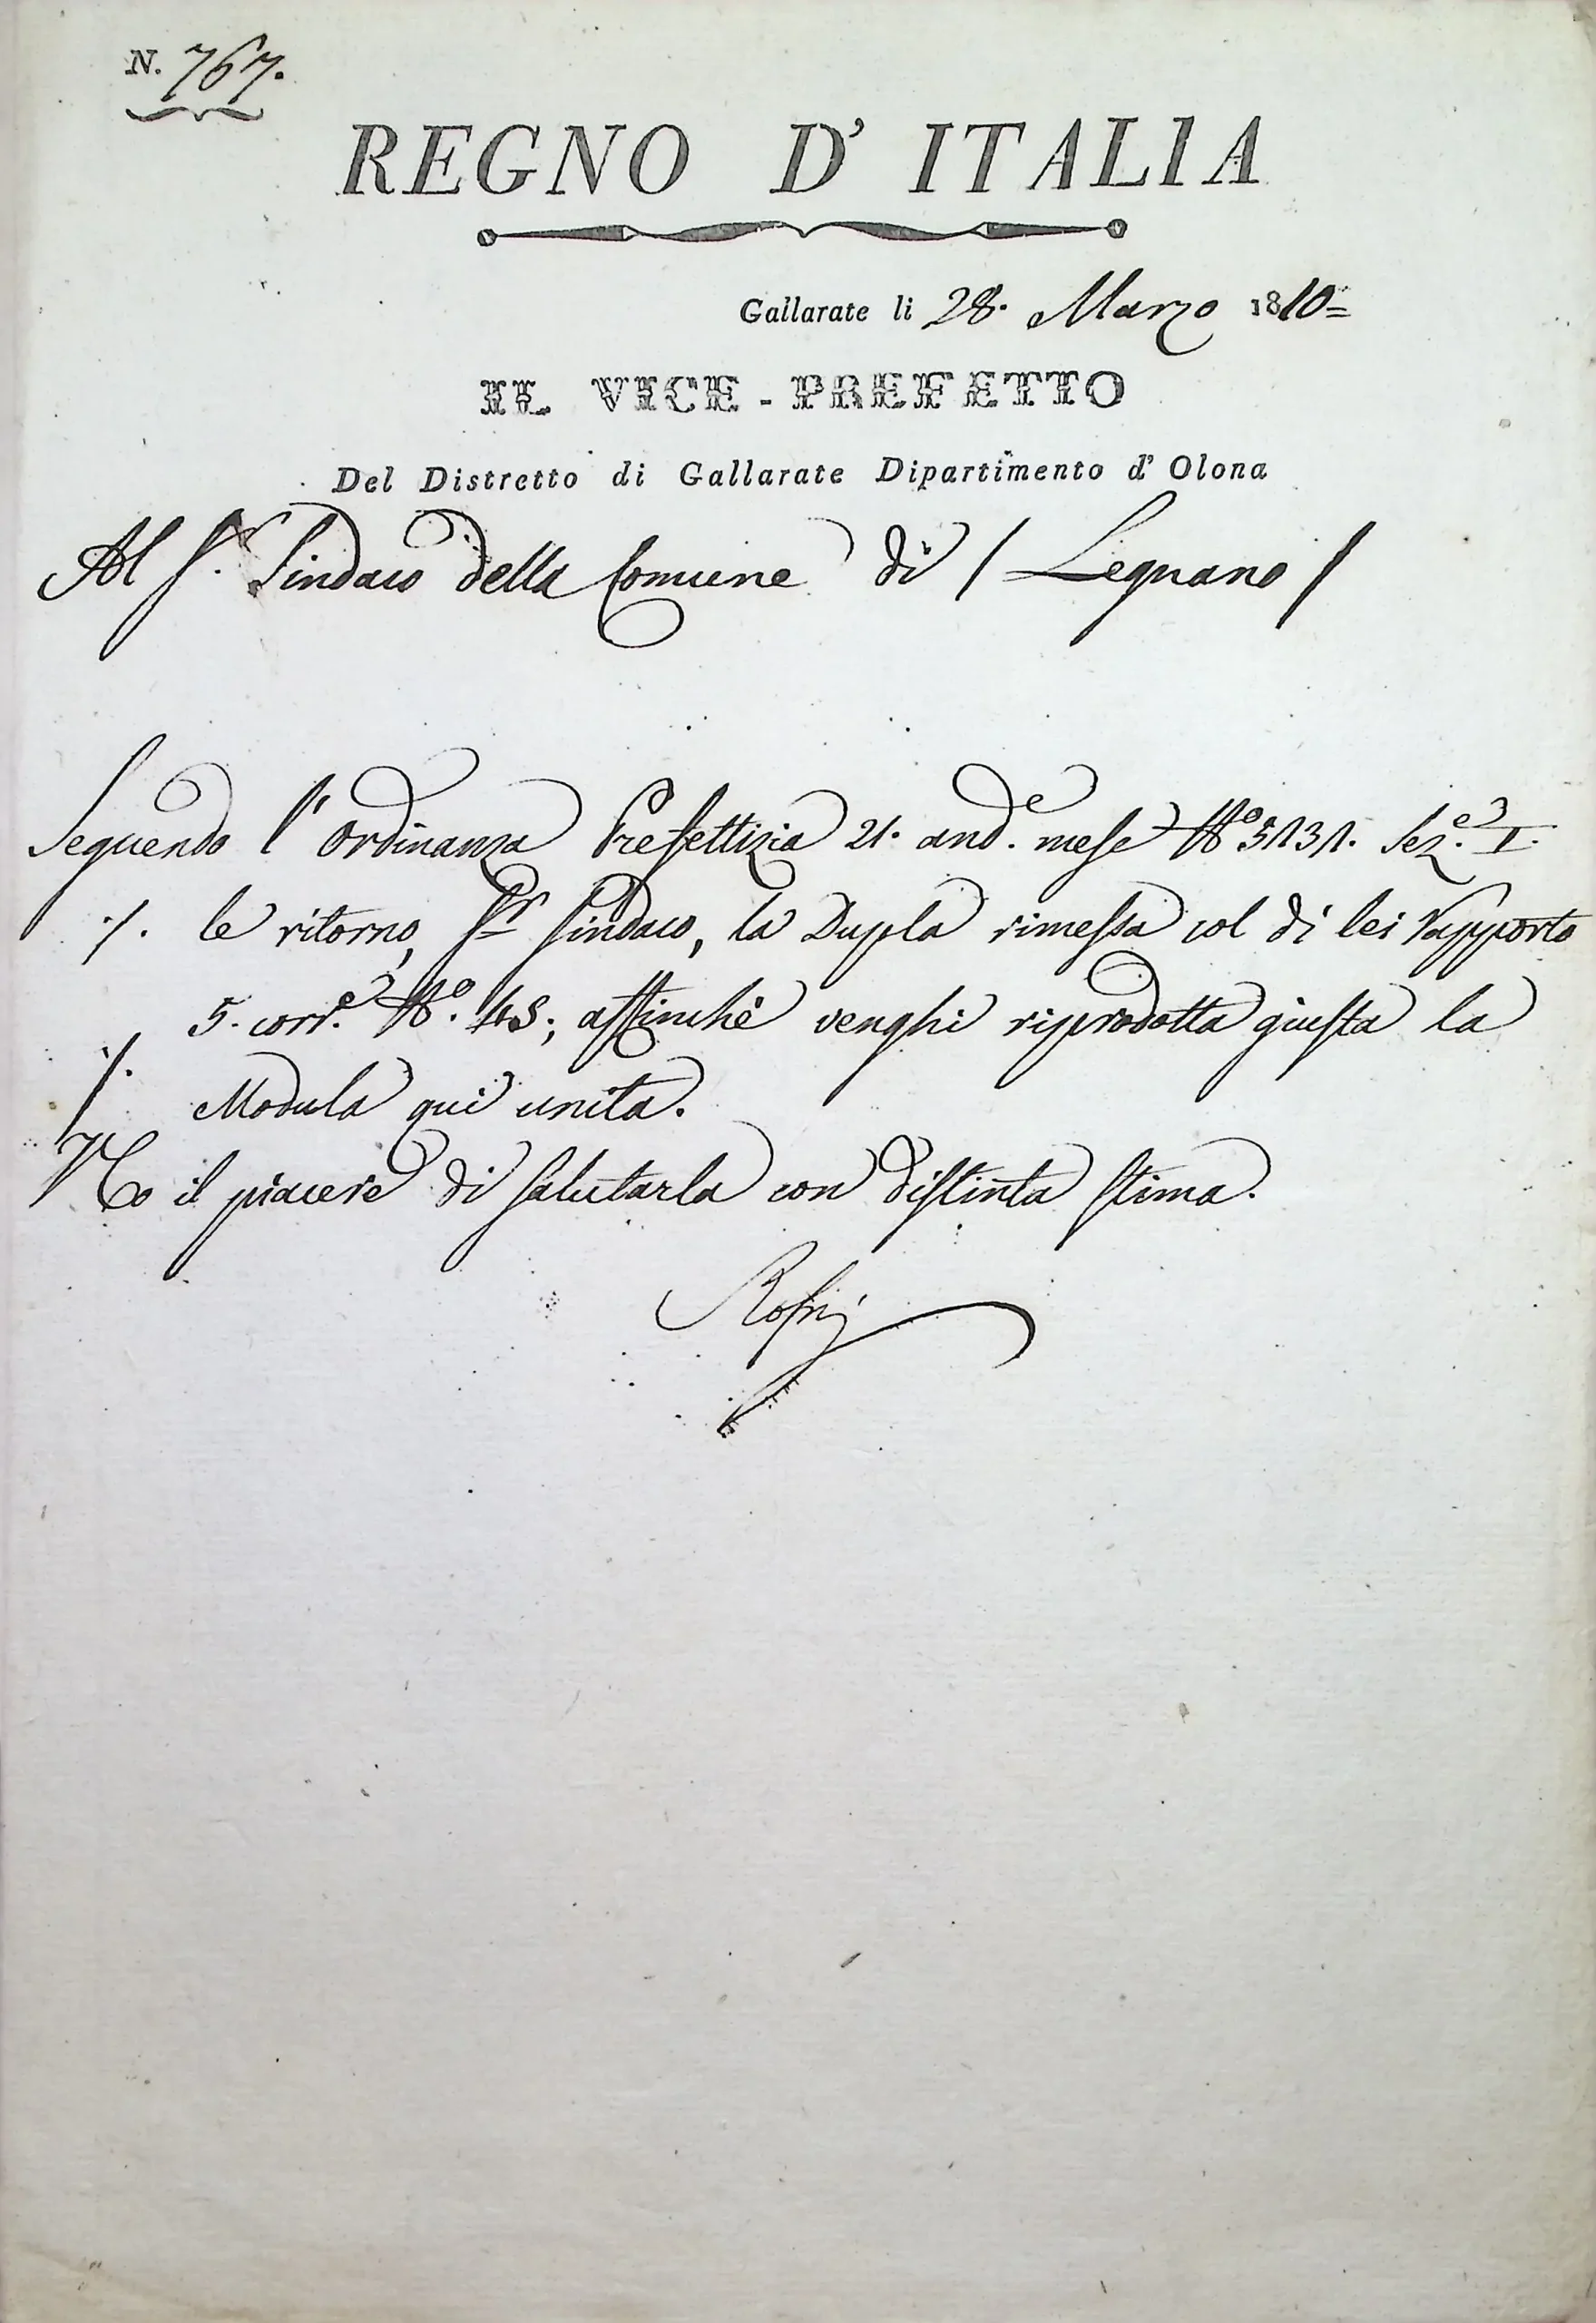 N. 767.
REGNO D' ITALIA
Gallarate li 28. Marzo 1810=
IL VICE-PREFETTO
Del Distretto di Gallarate Dipartimento d' Olona
Al S.r Sindaco della Comune di / Legnano /
Seguendo l'Ordinanza Prefettizia 21. and. mese N.o 5131. Sez.e I.
./. le ritorno, S.r Sindaco, la Dupla rimessa col di lei Rapporto
5. corr.e N.o 48; affinchè venghi riprodotta giusta la
./. Modula qui unita.
Ho il piacere di salutarla con distinta stima.